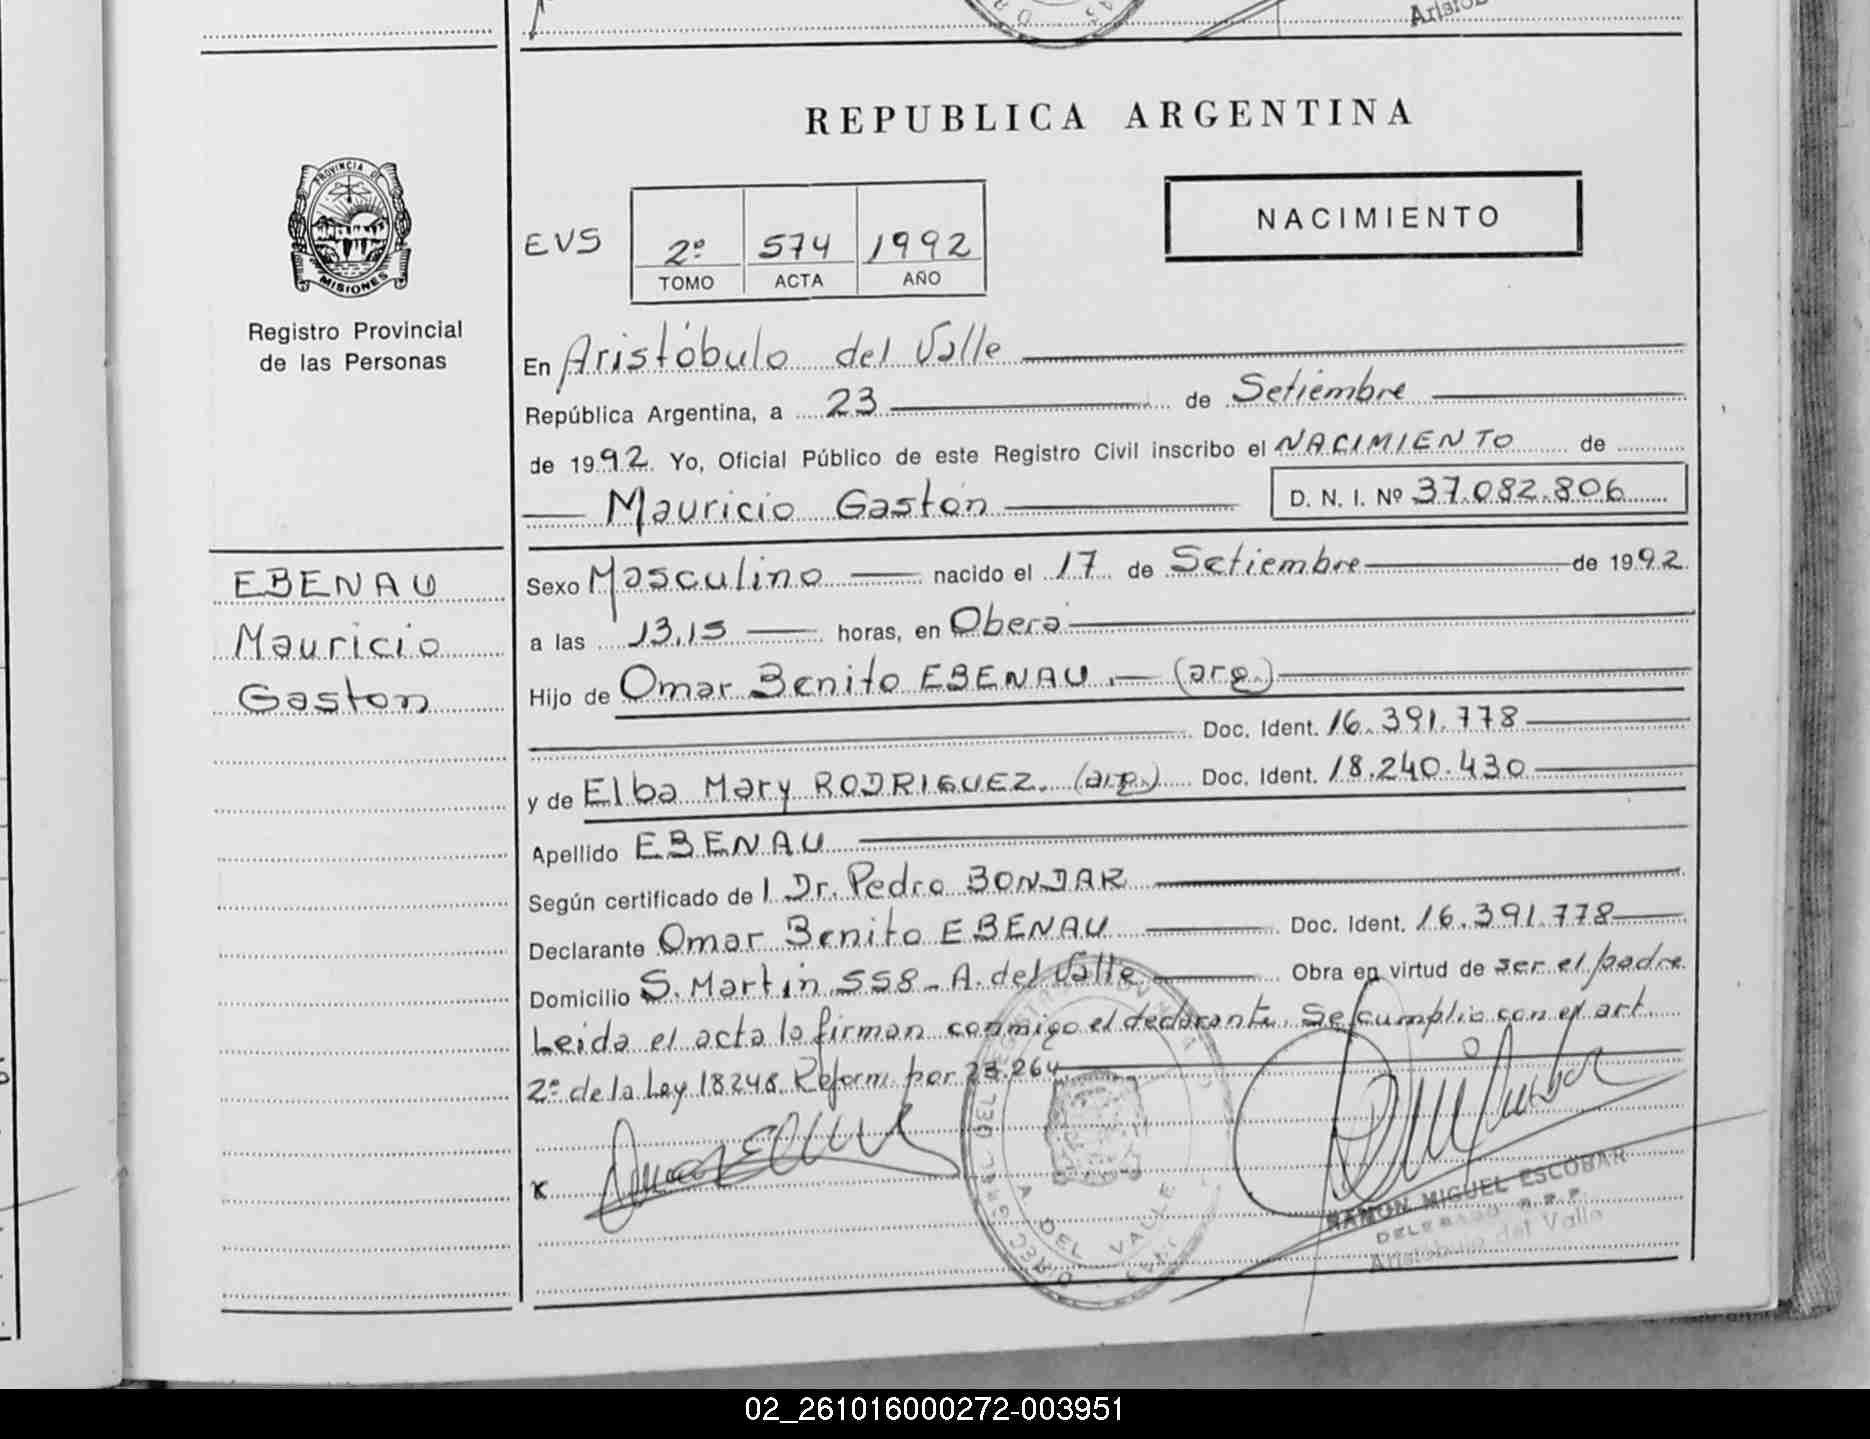 REPUBLICA ARGENTINA
PROVINCIA DE
MISIONES
Registro Provincial
de las Personas
NACIMIENTO
EVS 2º 574 1992
TOMO ACTA AÑO
En Aristóbulo del Valle
República Argentina, a 23 de Setiembre
de 1992. Yo, Oficial Público de este Registro Civil inscribo el NACIMIENTO de
Mauricio Gastón D. N. I. Nº 37.082.806
EBENAU
Mauricio
Gaston
Sexo Masculino nacido el 17 de Setiembre de 1992.
a las 13,15 horas, en Oberá
Hijo de Omar Benito EBENAU.- (arg.)
Doc. Ident. 16.391.778
y de Elba Mary RODRIGUEZ. (arg.) Doc. Ident. 18.240.430
Apellido EBENAU
Según certificado de l Dr. Pedro BONDAR
Declarante Omar Benito EBENAU Doc. Ident. 16.391.778
Domicilio S. Martin 558- A. del Valle Obra en virtud de ser el padre
Leida el acta la firman conmigo el declarante. Se cumplió con el art.
2º de la Ley 18248. Reform. por 23.264
RAMON MIGUEL ESCOBAR
DELEGADO R.R.P.
Aristobulo del Valle
A. DEL VALLE
02_261016000272-003951